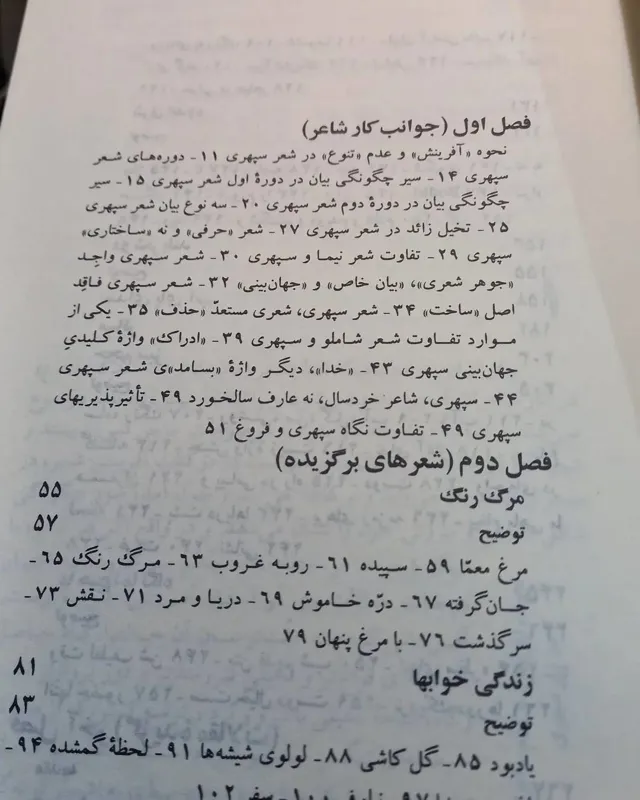 فصل اول (جوانب کار شاعر)
نحوه «آفرینش» و عدم «تنوع» در شعر سپهری ۱۱ـ دوره‌های شعر
سپهری ۱۴ـ سیر چگونگی بیان در دورهٔ اول شعر سپهری ۱۵ـ سیر
چگونگی بیان در دورهٔ دوم شعر سپهری ۲۰ـ سه نوع بیان شعر سپهری
۲۵ـ تخیل زائد در شعر سپهری ۲۷ـ شعر «حرفی» و نه «ساختاری»
سپهری ۲۹ـ تفاوت شعر نیما و سپهری ۳۰ـ شعر سپهری واجِد
«جوهر شعری»، «بیان خاص» و «جهان‌بینی» ۳۲ـ شعر سپهری فاقِد
اصل «ساخت» ۳۴ـ شعر سپهری، شعری مستعدّ «حذف» ۳۵ـ یکی از
موارد تفاوت شعر شاملو و سپهری ۳۹ـ «ادراک» واژهٔ کلیدیِ
جهان‌بینی سپهری ۴۳ـ «خدا»، دیگر واژهٔ «بسامد»ی شعر سپهری
۴۴ـ سپهری، شاعر خردسال، نه عارف سالخورد ۴۹ـ تأثیرپذیریهای
سپهری ۴۹ـ تفاوت نگاه سپهری و فروغ ۵۱
فصل دوم (شعرهای برگزیده)
مرگ رنگ ۵۵
توضیح ۵۷
مرغ معمّا ۵۹ـ سپیده ۶۱ـ روبه غروب ۶۳ـ مرگ رنگ ۶۵ـ
جان‌گرفته ۶۷ـ درّه خاموش ۶۹ـ دریا و مرد ۷۱ـ نقش ۷۳ـ
سرگذشت ۷۶ـ با مرغ پنهان ۷۹
زندگی خوابها ۸۱
توضیح ۸۳
یادبود ۸۵ـ گل کاشی ۸۸ـ لولوی شیشه‌ها ۹۱ـ لحظهٔ گمشده ۹۴ـ
۹۷ـ ۱۰۰ـ سفر ۱۰۲